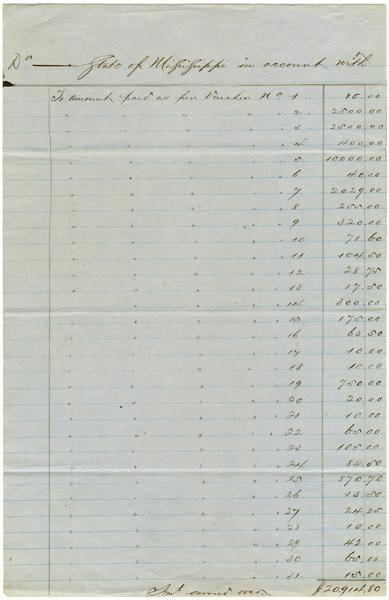 Dr State of Mississippi in account with
To amount paid as per Voucher No 1 15.00
" " " " 2 2500.00
" " " " 3 2500.00
" " " " 4 400.00
" " " " 5 10000.00
" " " " 6 40.00
" " " " 7 2029.00
" " " " 8 255.00
" " " " 9 320.00
" " " " 10 71.60
" " " " 11 104.50
" " " " 12 28.75
" " " " 13 17.50
" " " " 14 300.00
" " " " 15 175.00
" " " " 16 63.50
" " " " 17 10.00
" " " " 18 10.00
" " " " 19 750.00
" " " " 20 20.00
" " " " 21 10.00
" " " " 22 65.00
" " " " 23 105.00
" " " " 24 84.50
" " " " 25 870.70
" " " " 26 13.50
" " " " 27 24.25
" " " " 28 10.00
" " " " 29 42.00
" " " " 30 65.00
" " " " 31 15.00
Amt carried over $20,914.80